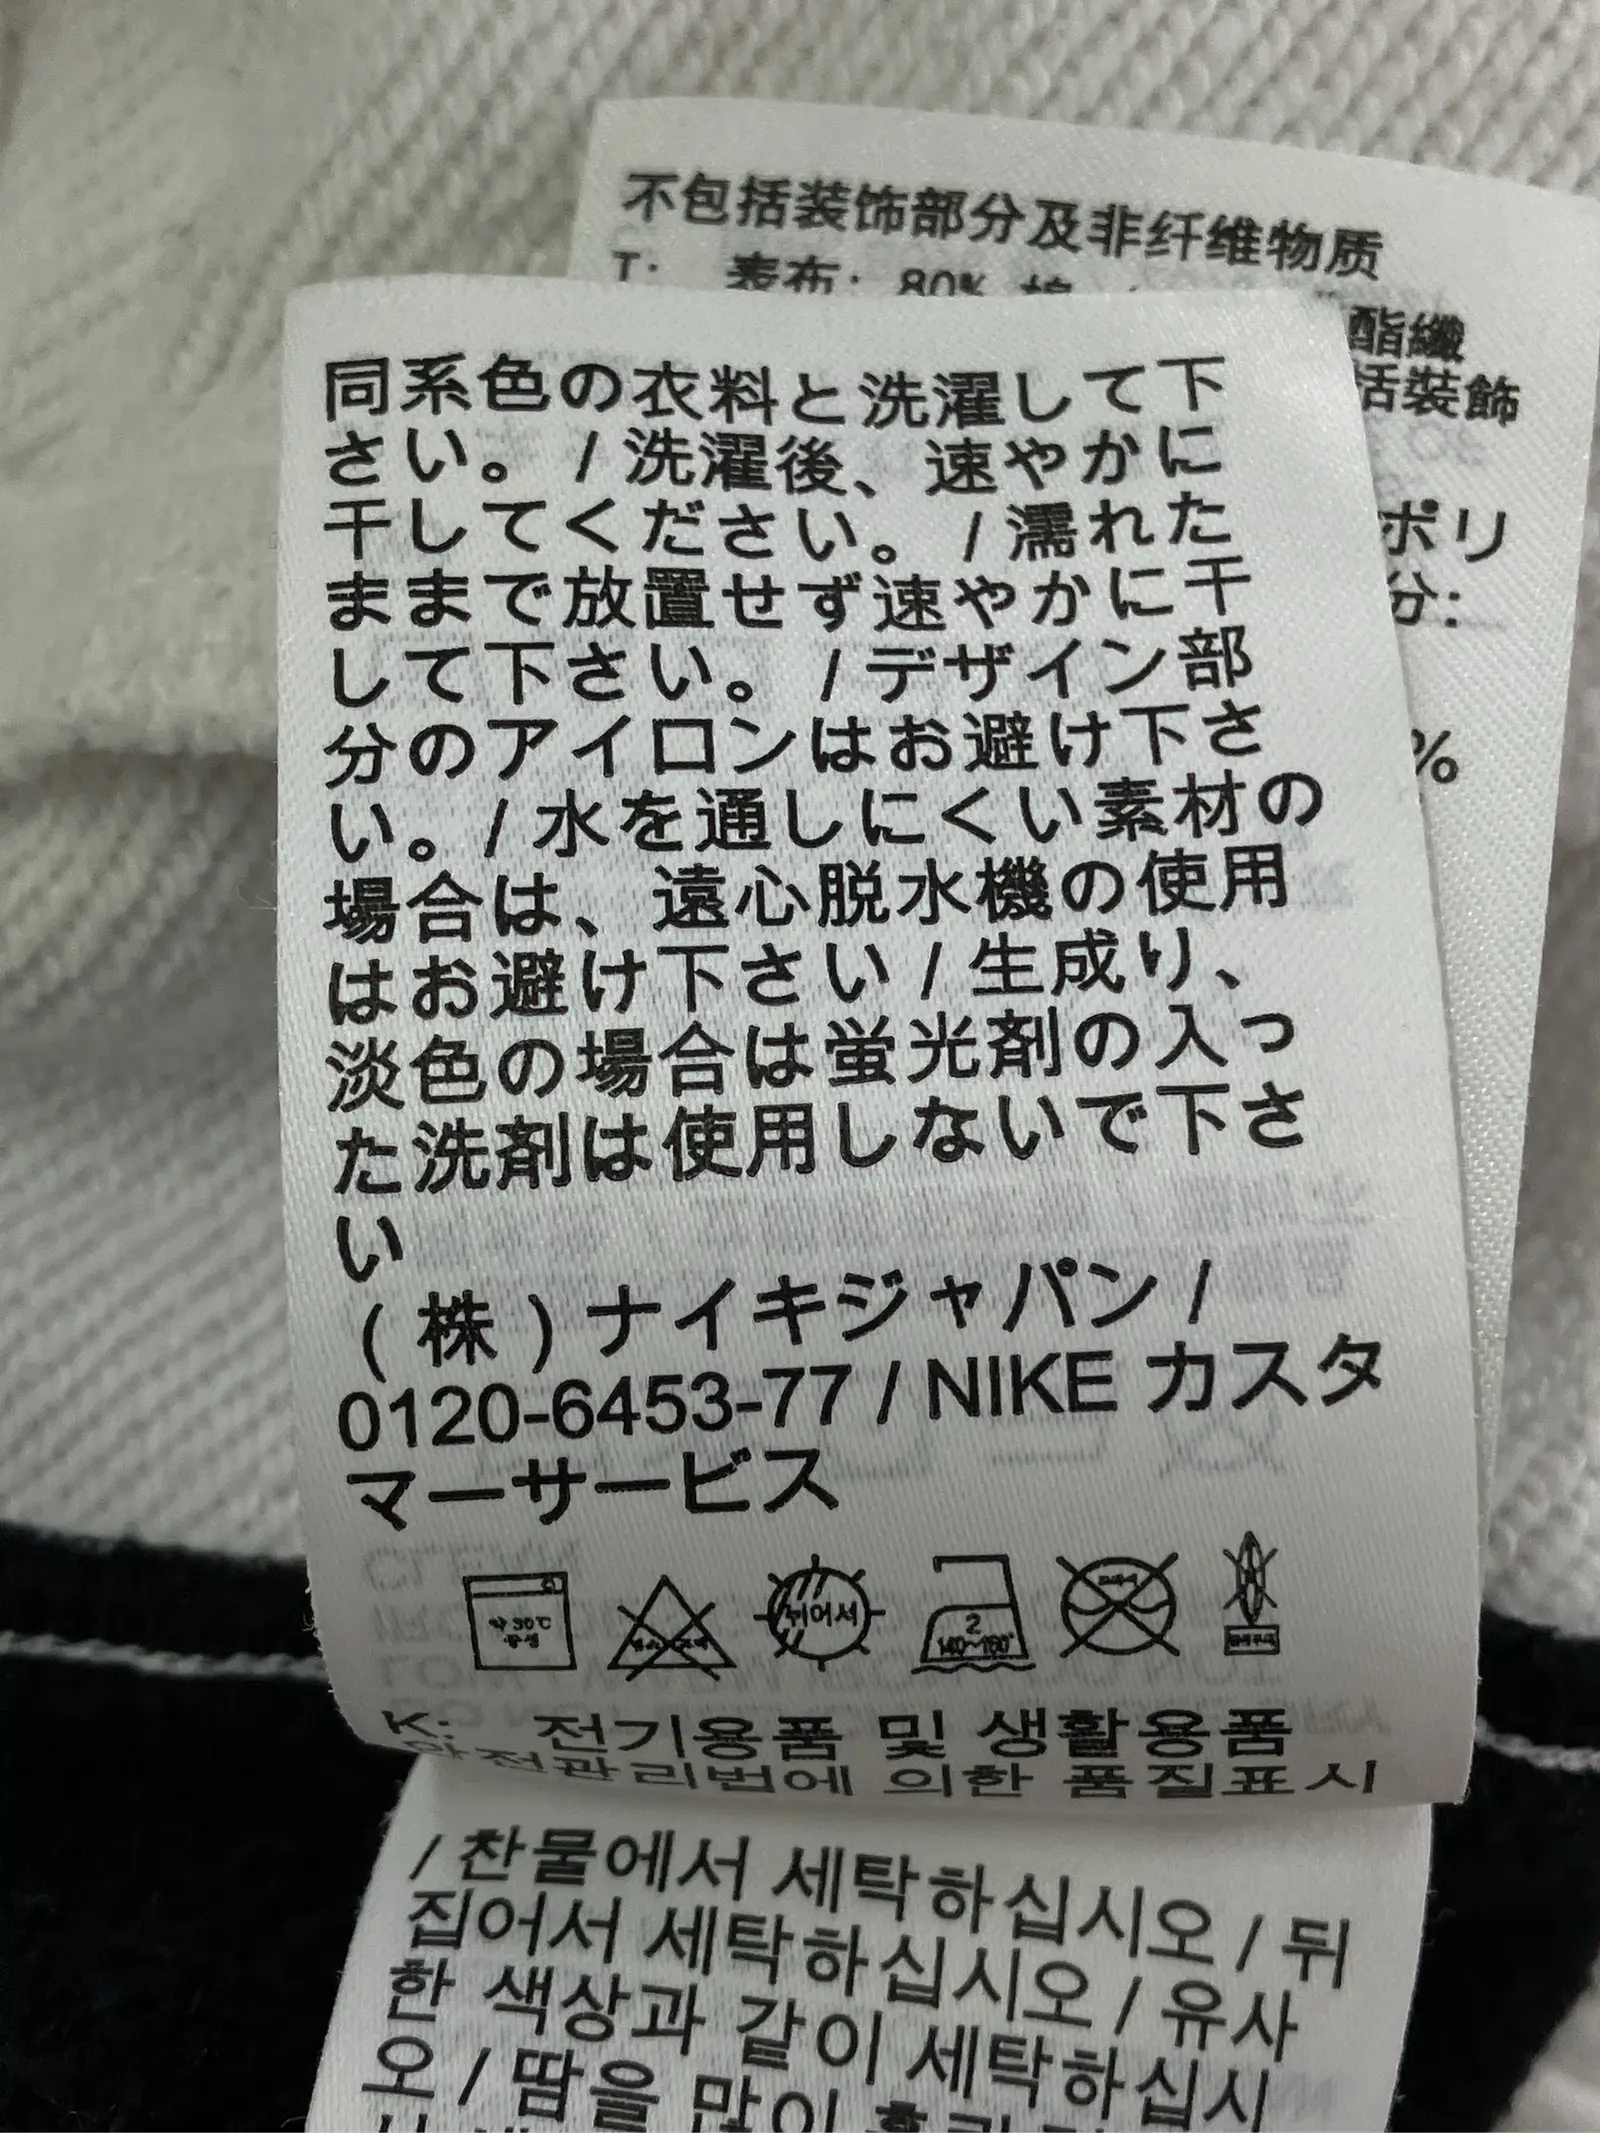 不包括装饰部分及非纤维物质
T: 表布: 80% 棉
酯纖
括裝飾
ポリ
分:
%
同系色の衣料と洗濯して下
さい。 / 洗濯後、速やかに
干してください。 / 濡れた
ままで放置せず速やかに干
して下さい。 / デザイン部
分のアイロンはお避け下さ
い。/ 水を通しにくい素材の
場合は、遠心脱水機の使用
はお避け下さい / 生成り、
淡色の場合は蛍光剤の入っ
た洗剤は使用しないで下さ
い
(株)ナイキジャパン /
0120-6453-77 / NIKE カスタ
マーサービス
약 30℃
중성
뒤어서
2
140~160°
K: 전기용품 및 생활용품
안전관리법에 의한 품질표시
/ 찬물에서 세탁하십시오 / 뒤
집어서 세탁하십시오 / 유사
한 색상과 같이 세탁하십시
오 / 땀을 많이